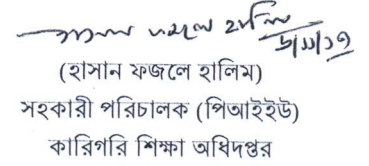 হাসান ফজলে হালিম
৬/১১/১৭
(হাসান ফজলে হালিম)
সহকারী পরিচালক (পিআইইউ)
কারিগরি শিক্ষা অধিদপ্তর